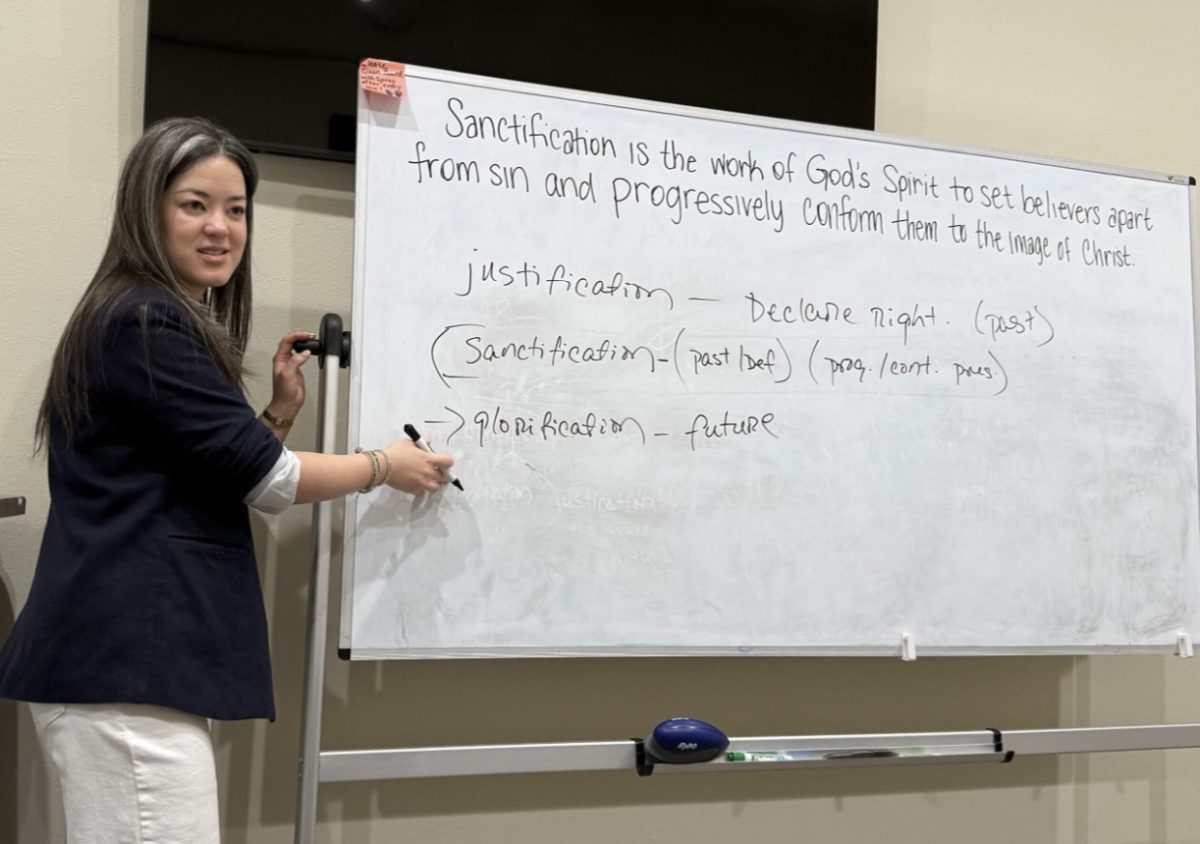 Note
Clean board
with spray
after every
use!
Sanctification is the work of God's Spirit to set believers apart
from sin and progressively conform them to the image of Christ.
justification — Declare right. (past)
(Sanctification - (past/Def) (prog./cont. pres.)
→ glorification - future
justification
EXPO